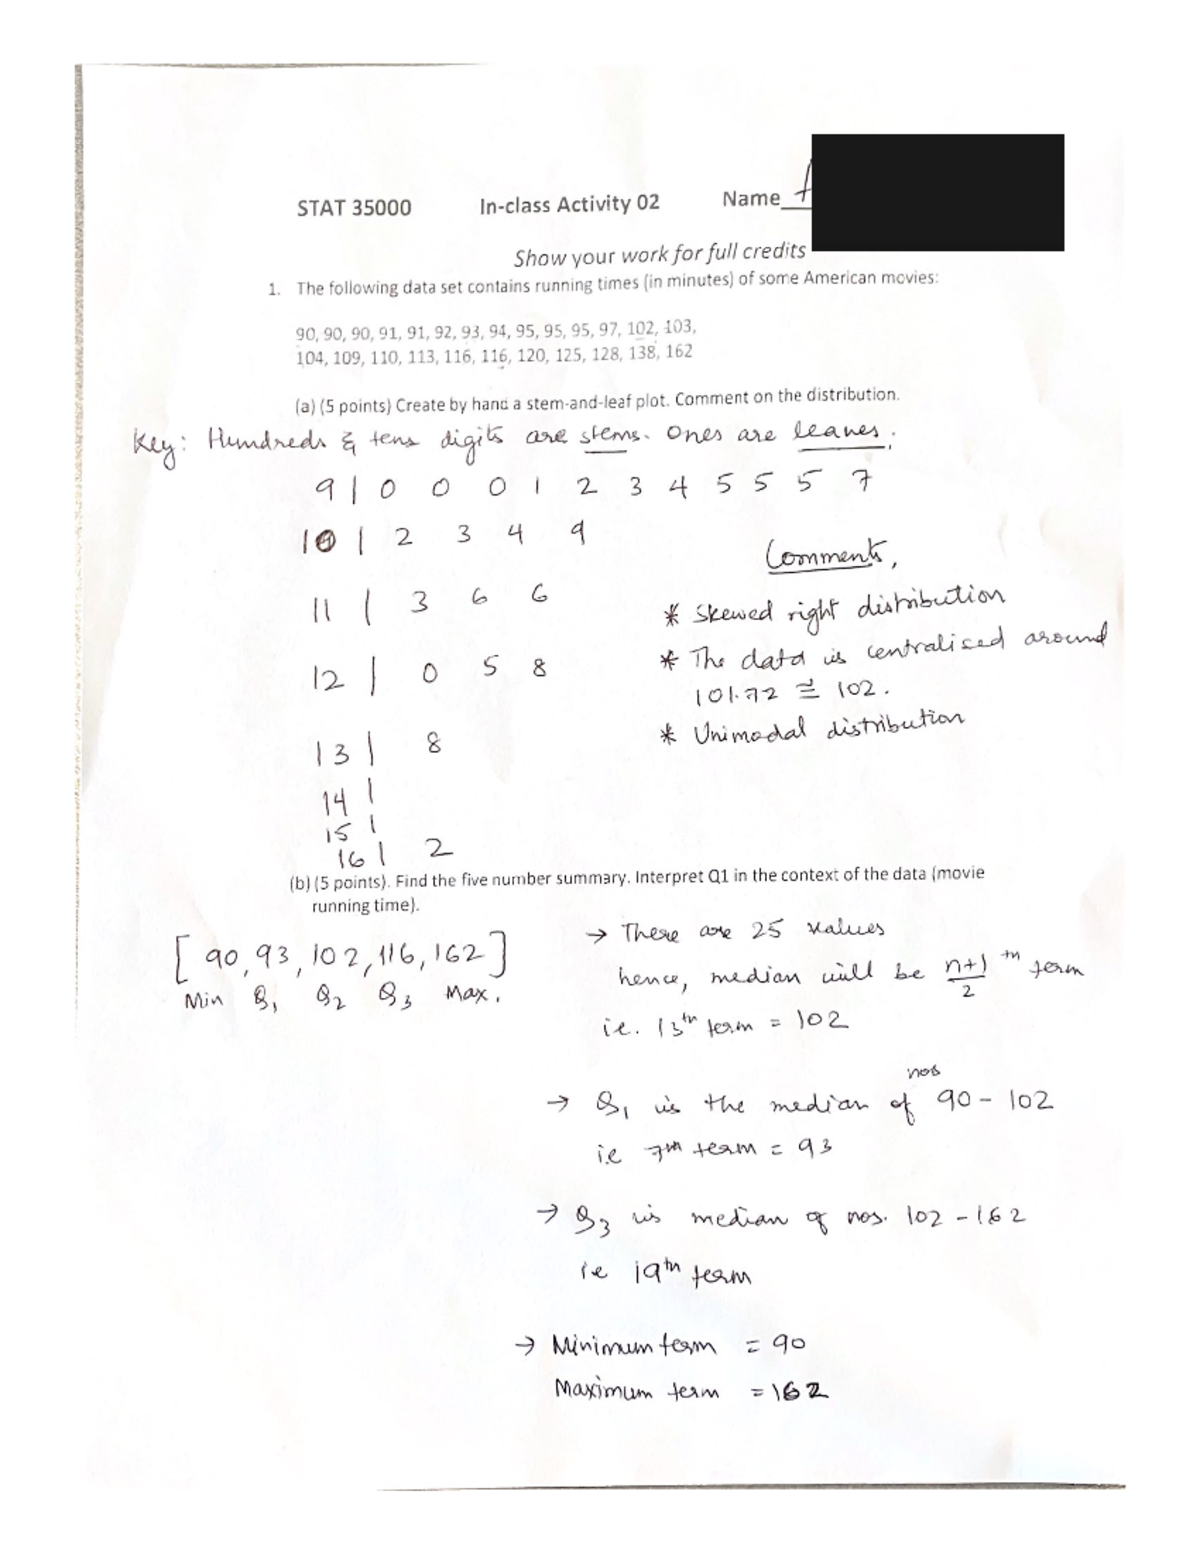 STAT 35000 In-class Activity 02 Name
Show your work for full credits
1. The following data set contains running times (in minutes) of some American movies:
90, 90, 90, 91, 91, 92, 93, 94, 95, 95, 95, 97, 102, 103,
104, 109, 110, 113, 116, 116, 120, 125, 128, 138, 162
(a) (5 points) Create by hand a stem-and-leaf plot. Comment on the distribution.
Key: Hundreds & tens digits are stems. Ones are leaves.
9 | 0 0 0 1 2 3 4 5 5 5 7
10 | 2 3 4 9
Comments,
11 | 3 6 6
* Skewed right distribution
12 | 0 5 8
* The data is centralised around
101.72 ≅ 102.
* Unimodal distribution
13 | 8
14 |
15 |
16 | 2
(b) (5 points). Find the five number summary. Interpret Q1 in the context of the data (movie
running time).
[90, 93, 102, 116, 162]
Min Q1 Q2 Q3 Max.
→ There are 25 values
hence, median will be n+1/2 th term
ie. 13th term = 102
→ Q1 is the median of nos 90 - 102
i.e 7th term = 93
→ Q3 is median of nos. 102 - 162
ie 19th term
→ Minimum term = 90
Maximum term = 162